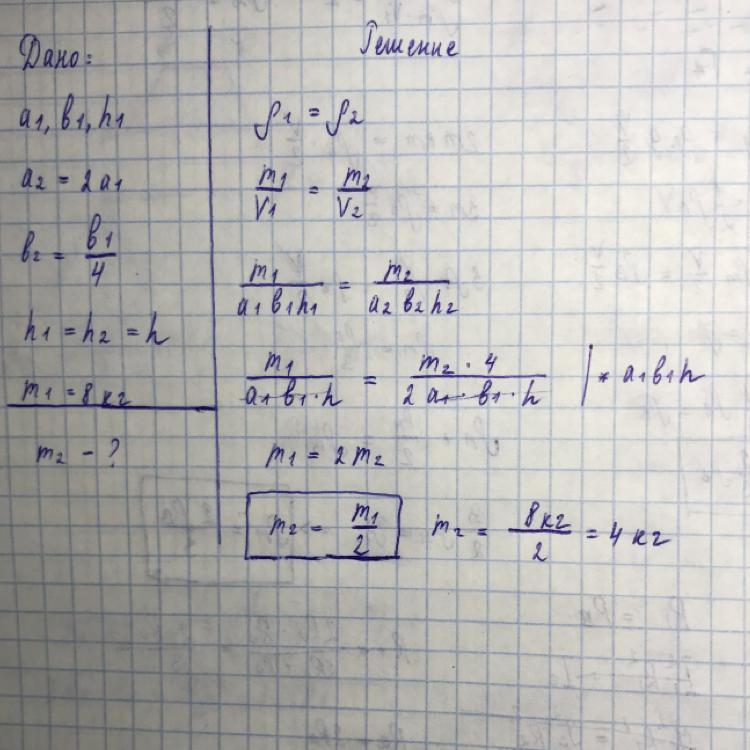 Дано:
a₁, b₁, h₁
a₂ = 2a₁
b₂ = b₁/4
h₁ = h₂ = h
m₁ = 8 кг
m₂ - ?
Решение
ρ₁ = ρ₂
m₁/V₁ = m₂/V₂
m₁/(a₁ b₁ h₁) = m₂/(a₂ b₂ h₂)
m₁/(a₁ b₁ · h) = (m₂ · 4)/(2 a₁ · b₁ · h) | * a₁b₁h
m₁ = 2 m₂
m₂ = m₁/2 m₂ = 8 кг/2 = 4 кг